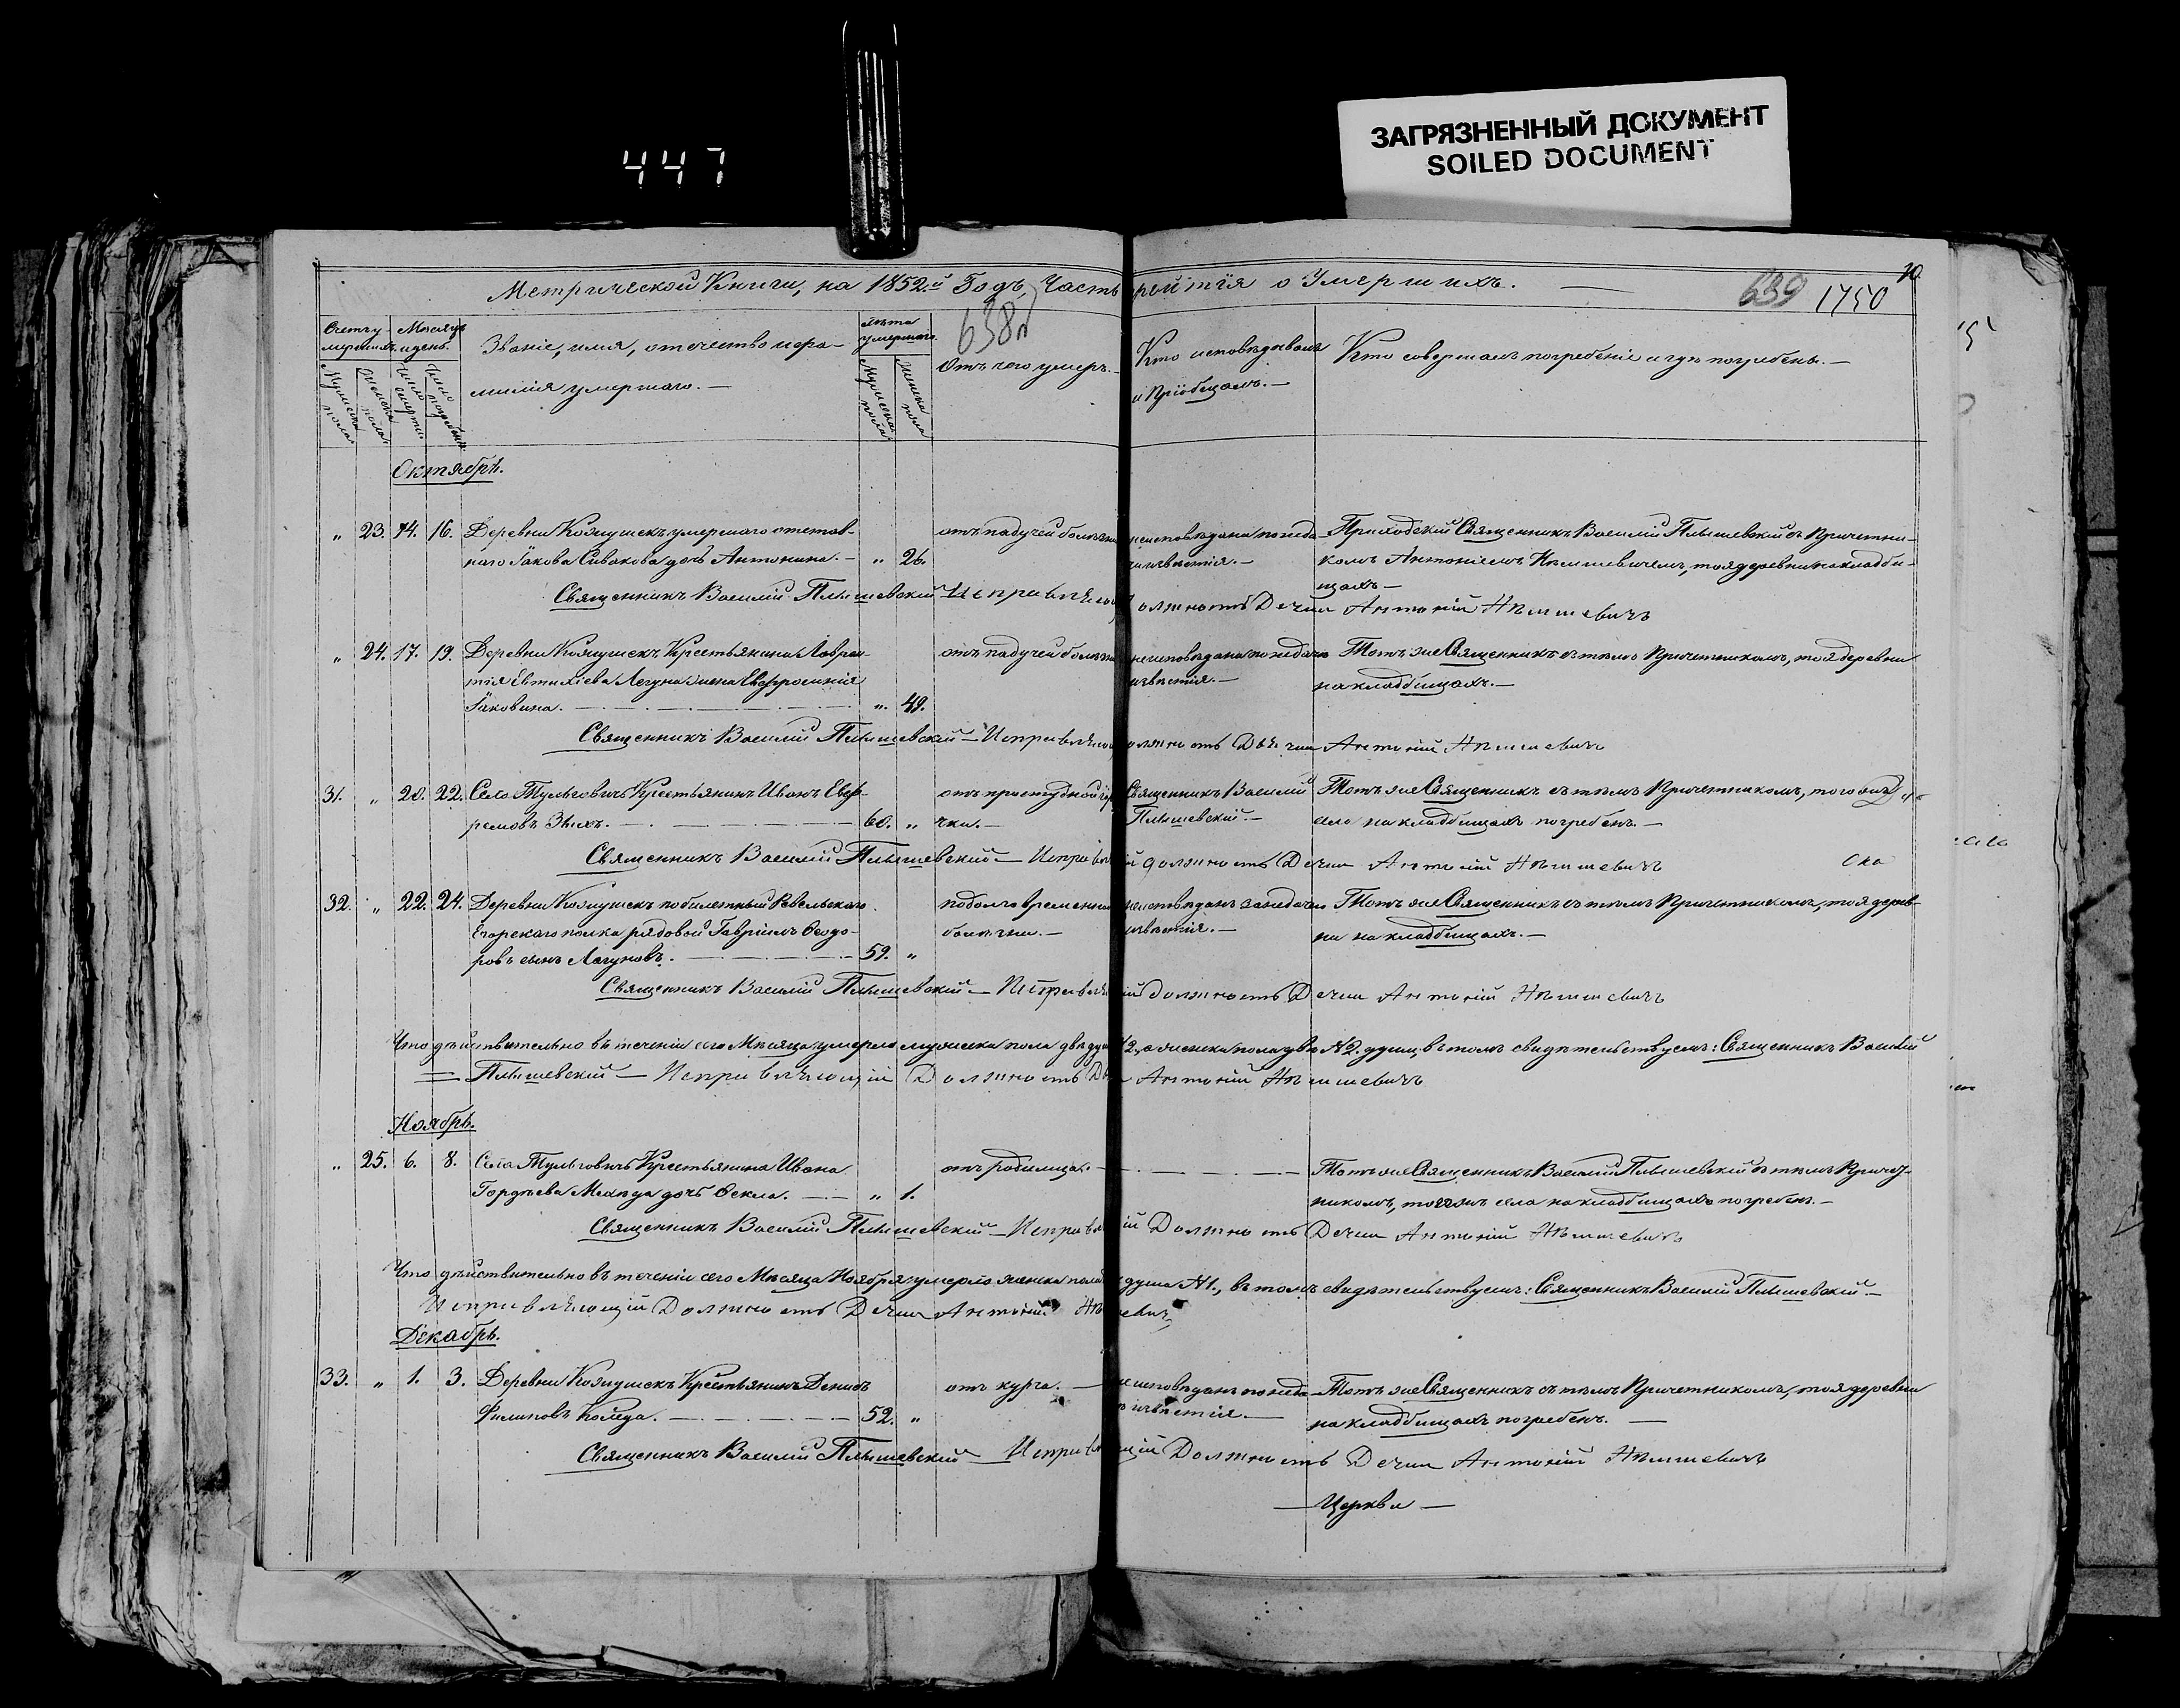 447
ЗАГРЯЗНЕННЫЙ ДОКУМЕНТ
SOILED DOCUMENT
Метрической Книги, на 1852.й Годъ, Часть третія о Умершихъ. —
638
639 1750
Счетъ умершихъ.
Мѣсяцъ и день.
Званіе, имя, отечество и фамилія умершаго. —
Лѣта умершаго.
Отъ чего умеръ. —
Кто исповѣдывалъ и Пріобщалъ. —
Кто совершалъ погребеніе и гдѣ погребенъ. —
Мужеска пола
Женска пола
Число смерти
Число погребенія
Мужеска пола
Женска пола
Октябрь.
„ 23. 14. 16. Деревни Кожушекъ умершаго отстав-
наго Іакова Сивакова дочь Антонина. — „ 26.
отъ падучей болѣзни
неисповѣдана по неда-
чи извѣстія. —
Приходскій Священникъ Василій Плышевскій съ Причетни-
комъ Антоніемъ, тоя деревни на кладби-
щахъ —
Священникъ Василій Плышевскій Исправляющій Должность Дьячка Антоній
„ 24. 17. 19. Деревни Кожушекъ Крестьянина Лаврен-
тія Евтихіева Логуна жена Евфросинія
Іаковина. — „ 49.
отъ падучей болѣзни
неисповѣдана по недачи
извѣстія. —
Тотъ же Священникъ съ тѣмъ Причетникомъ, тоя деревни
на кладбищахъ. —
Священникъ Василій Плышевскій — Исправляющій должность Дьячка Антоній
31. „ 20. 22. Села Тульговичъ Крестьянинъ Иванъ Евф-
ремовъ — 60. „
отъ простудной горя-
чки. —
Священникъ Василій
Плышевскій. —
Тотъ же Священникъ съ тѣмъ Причетникомъ, того жъ
села на кладбищахъ погребенъ. —
Священникъ Василій Плышевскій — Исправляющій должность Дьячка Антоній
32. „ 22. 24. Деревни Кожушекъ побилетный Ревельскаго
Егерскаго полка рядовой Гавріилъ Ѳеодо-
ровъ сынъ Логуновъ. — 59. „
по долговременной
болѣзни. —
неисповѣданъ за недачи
извѣстія. —
Тотъ же Священникъ съ тѣмъ Причетникомъ, тоя дерев-
ни на кладбищахъ. —
Священникъ Василій Плышевскій — Исправляющій должность Дьячка Антоній
Что дѣйствительно въ теченіи сего Мѣсяца умерло мужеска пола двѣ души 2, а женска пола двѣ № 2. души, въ томъ свидѣтельствуемъ: Священникъ Василій
Плышевскій — Исправляющій Должность Дьячка Антоній
Ноябрь.
„ 25. 6. 8. Села Тульговичъ Крестьянина Ивана
Гордѣева дочь Ѳекла. — „ 1.
отъ родимца. —
Тотъ же Священникъ Василій Плышевскій съ тѣмъ Причет-
никомъ, села на кладбищахъ погребен. —
Священникъ Василій Плышевскій — Исправляющій Должность Дьячка Антоній
Что дѣйствительно въ теченіи сего Мѣсяца Ноября умерло женска пола душа № 1., въ томъ свидѣтельствуемъ: Священникъ Василій Плышевскій —
Исправляющій Должность Дьячка Антоній
Декабрь.
33. „ 1. 3. Деревни Кожушекъ Крестьянинъ Денисъ
Филиповъ Коледа. — 52. „
отъ курча. —
неисповѣданъ по неда-
чи извѣстія. —
Тотъ же Священникъ съ тѣмъ Причетникомъ, тоя деревни
на кладбищахъ погребенъ. —
Священникъ Василій Плышевскій — Исправляющій Должность Дьячка Антоній
— Церкви —